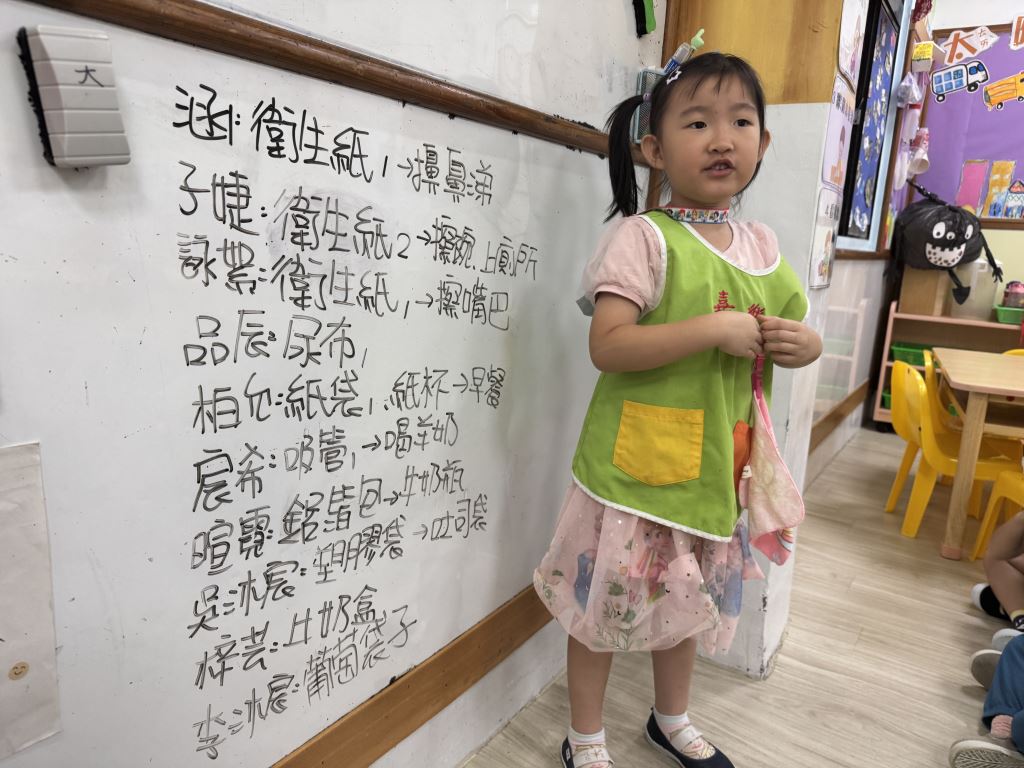 大
涵:衛生紙1→擤鼻涕
子婕:衛生紙2→擦碗.上廁所
詠甯:衛生紙1→擦嘴巴
品辰:尿布1
柏允:紙袋1.紙杯→早餐
宸希:吸管1→喝羊奶
暄霓:鋁箔包→牛奶瓶
吳沐宸:塑膠袋→吐司袋
梓芸:牛奶盒
李沐宸:葡萄袋子
大